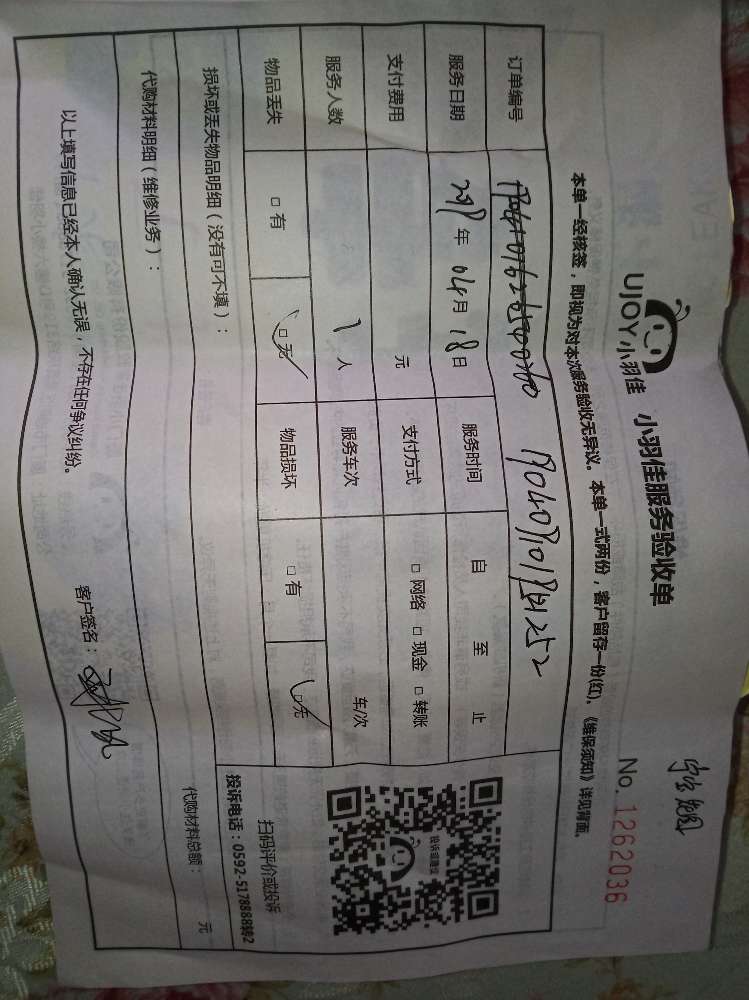 UJOY小羽佳 小羽佳服务验收单
No. 1262036
本单一经核签，即视为对本次服务验收无异议。本单一式两份，客户留存一份(红)，《维保须知》详见背面。
订单编号
服务日期 年 04月 18日 服务时间 自 至 止
支付费用 元 支付方式 □ 网络 □ 现金 □ 转账
服务人数 1 人 服务车次 车/次
物品丢失 □ 有 □ 无 物品损坏 □ 有 □ 无
投诉或建议
扫码评价或投诉
投诉电话：0592-5178888转2
损坏或丢失物品明细（没有可不填）：
代购材料明细（维修业务）： 代购材料总额： 元
以上填写信息已经本人确认无误，不存在任何争议纠纷。 客户签名：